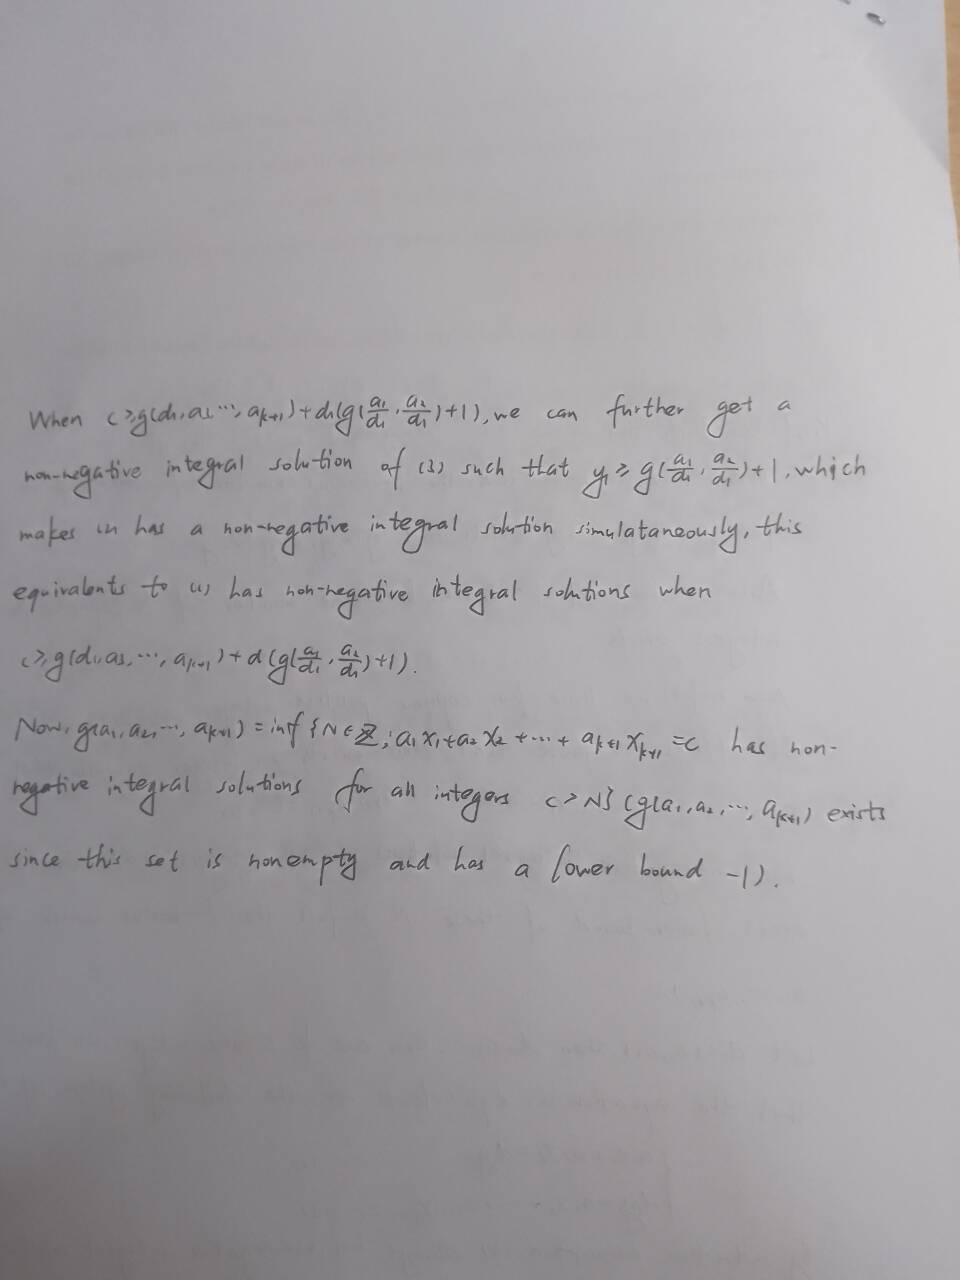 When c≥g(d₁,a₃,…,aₖ₊₁)+d₁(g(a₁/d₁,a₂/d₁)+1), we can further get a
non-negative integral solution of (3) such that y₁≥g(a₁/d₁,a₂/d₁)+1, which
makes (2) has a non-negative integral solution simulataneously, this
equivalents to (1) has non-negative integral solutions when
c≥g(d₁,a₃,…,aₖ₊₁)+d(g(a₁/d₁,a₂/d₁)+1).
Now, g(a₁,a₂,…,aₖ₊₁)=inf{N∈ℤ;a₁x₁+a₂x₂+…+aₖ₊₁xₖ₊₁=c has non-
negative integral solutions for all integers c>N}(g(a₁,a₂,…,aₖ₊₁) exists
since this set is nonempty and has a lower bound -1).